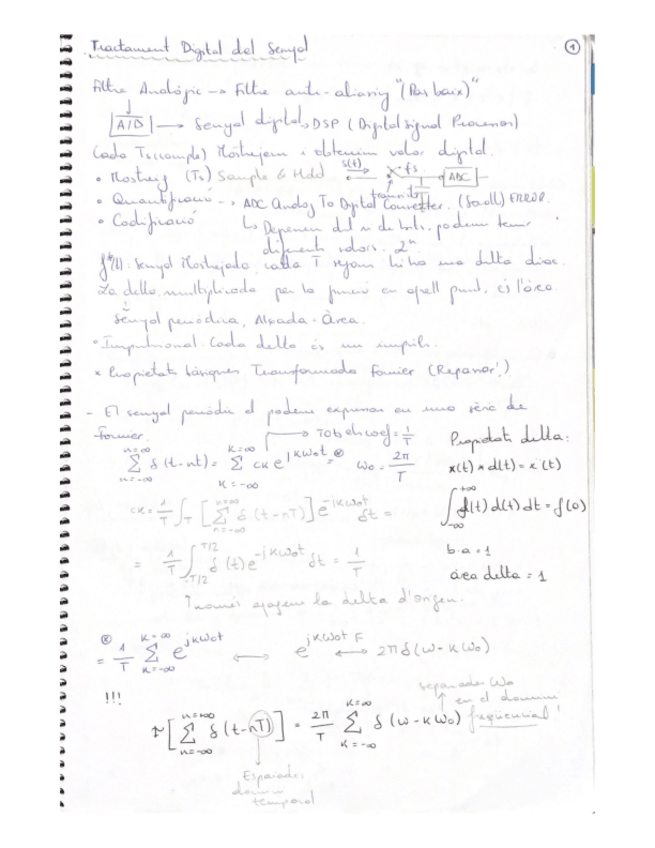 Tractament Digital del Senyal
1
Filtre Analògic → Filtre anti-aliasing "(Pas baix)"
A/D → Senyal digital → DSP (Digital Signal Processor)
Cada Ts (sample) Mostrejem i obtenim valor digital.
• Mostreig (Ts) Sample & Hold s(t) fs ADC
• Quantificació → ADC Analog To Digital Converter. ERROR.
• Codificació ↳ Depenem del n de bits, podem tenir
diferents valors. 2^n
f*(t): Senyal Mostrejada, cada T segons hi ha una delta dirac.
La delta, multiplicada per la funció en aquell punt, és l'àrea.
Senyal periòdica, Alçada = Àrea.
• Impulsional: Cada delta és un impuls.
* Propietats bàsiques Transformada Fourier (Repassar!)
- El senyal periòdic el podem expressar en una sèrie de
Fourier.
Tots els coef = 1/T
∑_{n=-∞}^{n=∞} δ(t-nt) = ∑_{K=-∞}^{K=∞} cK e^{jKW0t} ⊗= W0 = 2π/T
cK = 1/T ∫_T [∑_{n=-∞}^{n=∞} δ(t-nT)] e^{-jKW0t} δt =
= 1/T ∫_{-T/2}^{T/2} δ(t) e^{-jKW0t} δt = 1/T
↑ només agafem la delta d'origen.
Propietats delta:
x(t) * d(t) = x(t)
∫_{-∞}^{+∞} f(t) d(t) dt = f(0)
b·a = 1
àrea delta = 1
⊗
= 1/T ∑_{K=-∞}^{K=∞} e^{jKW0t} ⟷ e^{jKW0t} F⟷ 2πδ(W-KW0)
!!!
F[∑_{n=-∞}^{n=+∞} δ(t-nT)] = 2π/T ∑_{K=-∞}^{K=∞} δ(W-KW0)
separades W0
en el domini
freqüencial!
Espaiades
domini
temporal